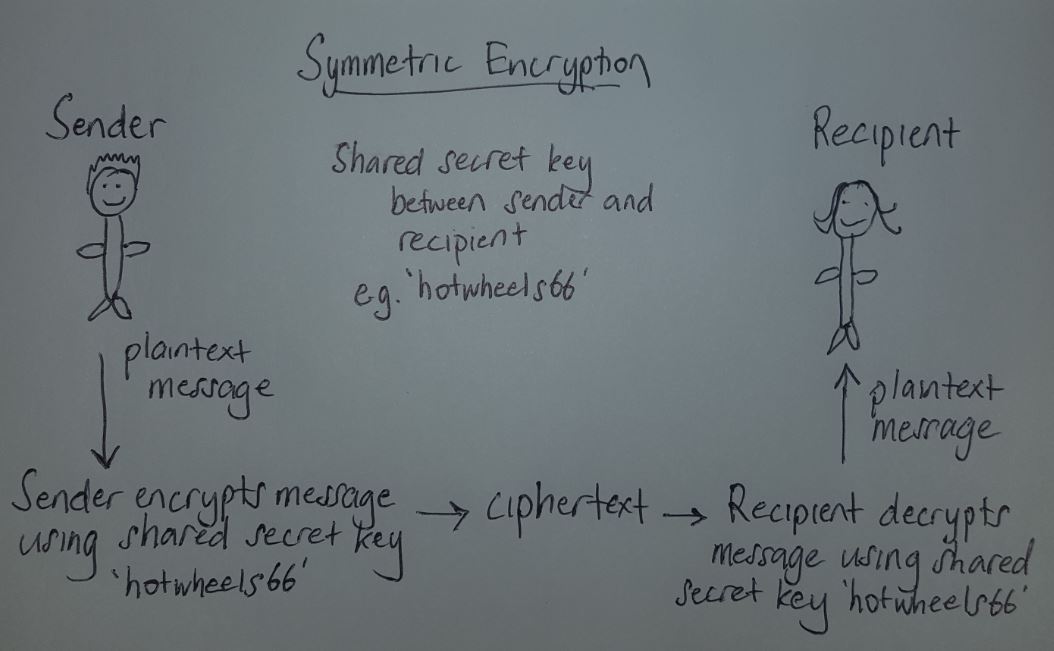 Symmetric Encryption
Sender
Recipient
Shared secret key
between sender and
recipient
e.g. 'hotwheels66'
plaintext
message
plaintext
message
Sender encrypts message
using shared secret key
'hotwheels66'
→ ciphertext →
Recipient decrypts
message using shared
secret key 'hotwheels66'